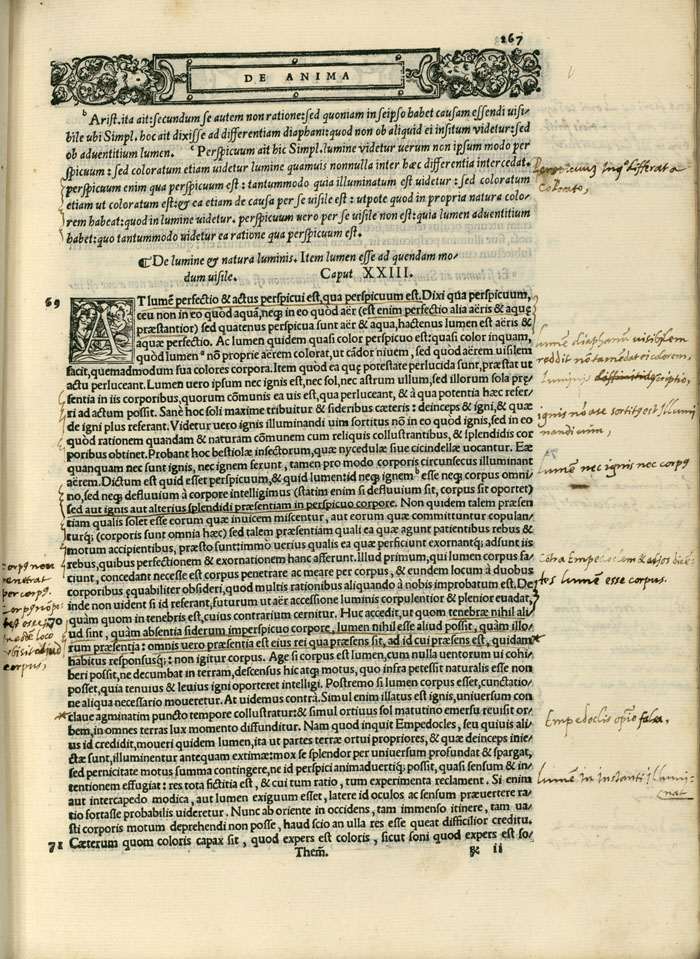 267
DE ANIMA
b Arist. ita ait: secundum se autem non ratione: sed quoniam in seipso habet causam essendi uisi-
bile ubi Simpl. hoc ait dixisse ad differentiam diaphani: quod non ob aliquid ei insitum videtur: sed
ob aduentitium lumen. c Perspicuum ait hic Simpl. lumine videtur uerum non ipsum modo per
spicuum: sed coloratum etiam uidetur lumine quamuis nonnulla inter hæc differentia intercedat.
perspicuum enim qua perspicuum est: tantummodo quia illuminatum est uidetur: sed coloratum
etiam ut coloratum est: & ea etiam de causa per se uisile est: utpote quod in propria natura colo-
rem habeat: quod in lumine uidetur. perspicuum uero per se uisile non est: quia lumen aduentitium
habet: quo tantummodo uidetur ea ratione qua perspicuum est.
Perspicuū differt a
Colorato,
¶De lumine & natura luminis. Item lumen esse ad quendam mo-
dum uisile. Caput XXIII.
69
AT lumē perfectio & actus perspicui est, qua perspicuum est. Dixi qua perspicuum,
ceu non in eo quòd aquā, neq; in eo quòd aër (est enim perfectio alia aëris & aquę
præstantior) sed quatenus perspicua sunt aër & aqua, hactenus lumen est aëris &
aquæ perfectio. Ac lumen quidem quasi color perspicuo est: quasi color inquam,
quòd lumen a nō proprie aërem colorat, ut cādor niuem, sed quòd aërem uisilem
facit, quemadmodum sua colores corpora. Item quòd ea quę potestate perlucida sunt, præstat ut
actu perluceant. Lumen uero ipsum nec ignis est, nec sol, nec astrum ullum, sed illorum sola prę/
sentia in iis corporibus, quorum cōmunis ea uis est, qua perluceant, & à qua potentia hæc refer/
ri ad actum possit. Sanè hoc soli maxime tribuitur & sideribus cæteris: deinceps & igni, & quæ
de igni plus referant. Videtur uero ignis illuminandi uim sortitus nō in eo quòd ignis, sed in eo
quòd rationem quandam & naturam cōmunem cum reliquis collustrantibus, & splendidis cor
poribus obtinet. Probant hoc bestiolæ insectorum, quæ nycedulæ siue cicindelæ uocantur. Eæ
quanquam nec sunt ignis, nec ignem ferunt, tamen pro modo corporis circunsecus illuminant
aërem. Dictum est quid esset perspicuum, & quid lumen: id neq; ignem b esse neq; corpus omni/
no, sed neq; defluuium à corpore intelligimus (statim enim si defluuium sit, corpus sit oportet)
sed aut ignis aut alterius splendidi præsentiam in perspicuo corpore. Non quidem talem præsen
tiam qualis solet esse eorum quæ inuicem miscentur, aut eorum quæ committuntur copulan-
turq; (corporis sunt omnia hæc) sed talem præsentiam quali ea quæ agunt patientibus rebus &
motum accipientibus, præsto sunt: immo uerius qualis ea quæ perficiunt exornantq; adsunt iis
rebus, quibus perfectionem & exornationem hanc afferunt. Illud primum, qui lumen corpus fa
ciunt, concedant necesse est corpus penetrare ac meare per corpus, & eundem locum à duobus
corporibus equabiliter obsideri, quod multis rationibus aliquando à nobis improbatum est. De
inde non uident si id referant, futurum ut aër accessione luminis corpulentior & plenior euadat,
quàm quom in tenebris est, cuius contrarium cernitur. Huc accedit, ut quom tenebræ nihil ali
70
ud sint, quàm absentia siderum imperspicuo corpore, lumen nihil esse aliud possit, quàm illo/
rum præsentia: omnis uero præsentia est eius rei qua præsens sit, ad id cui præsens est, quidam
habitus responsusq;: non igitur corpus. Age si corpus est lumen, cum nulla uentorum ui cohi-
beri possit, ne decumbat in terram, descensus hic atq; motus, quo infra petessit naturalis esse non
posset, quia tenuius & leuius igni oporteret intelligi. Postremo si lumen corpus esset, cunctatio/
ne aliqua necessario moueretur. At uidemus contrà. Simul enim illatus est ignis, uniuersum con
claue agminatim puncto tempore collustratur: & simul ortiuus sol matutino emersu reuisit or/
bem, in omnes terras lux momento diffunditur. Nam quod inquit Empedocles, seu quiuis ali/
us id credidit, moueri quidem lumen, ita ut partes terræ ortui propriores, & quæ deinceps inie/
ctæ sunt, illuminentur antequam extimæ: mox se splendor per uniuersum profundat & spargat,
sed pernicitate motus summa contingere, ne id perspici animaduertiq; possit, quasi sensum & in
tentionem effugiat: res tota fictitia est, & cui tum ratio, tum experimenta reclament. Si enim
aut intercapedo modica, aut lumen exiguum esset, latere id oculos ac sensum præuertere ra-
tio fortasse probabilis uideretur. Nunc ab oriente in occidens, tam immenso itinere, tam ua/
sti corporis motum deprehendi non posse, haud scio an ulla res esse queat difficilior creditu.
71 Cæterum quom coloris capax sit, quod expers est coloris, sicut soni quod expers est so/
Them̄. & ii
lumē diaphanū visibilem
reddit nō tamē dat ei colorem,
luminis
ignis nō
nandi vim,
lumē nec ignis nec corpꝰ
cōtra Empedoclem & alios dicē-
tes lumē esse corpus.
Empedoclis opīo falsa,
lumē in instanti illumi-
nat
corpꝰ non
penetrat
per corpꝰ.
corpus,